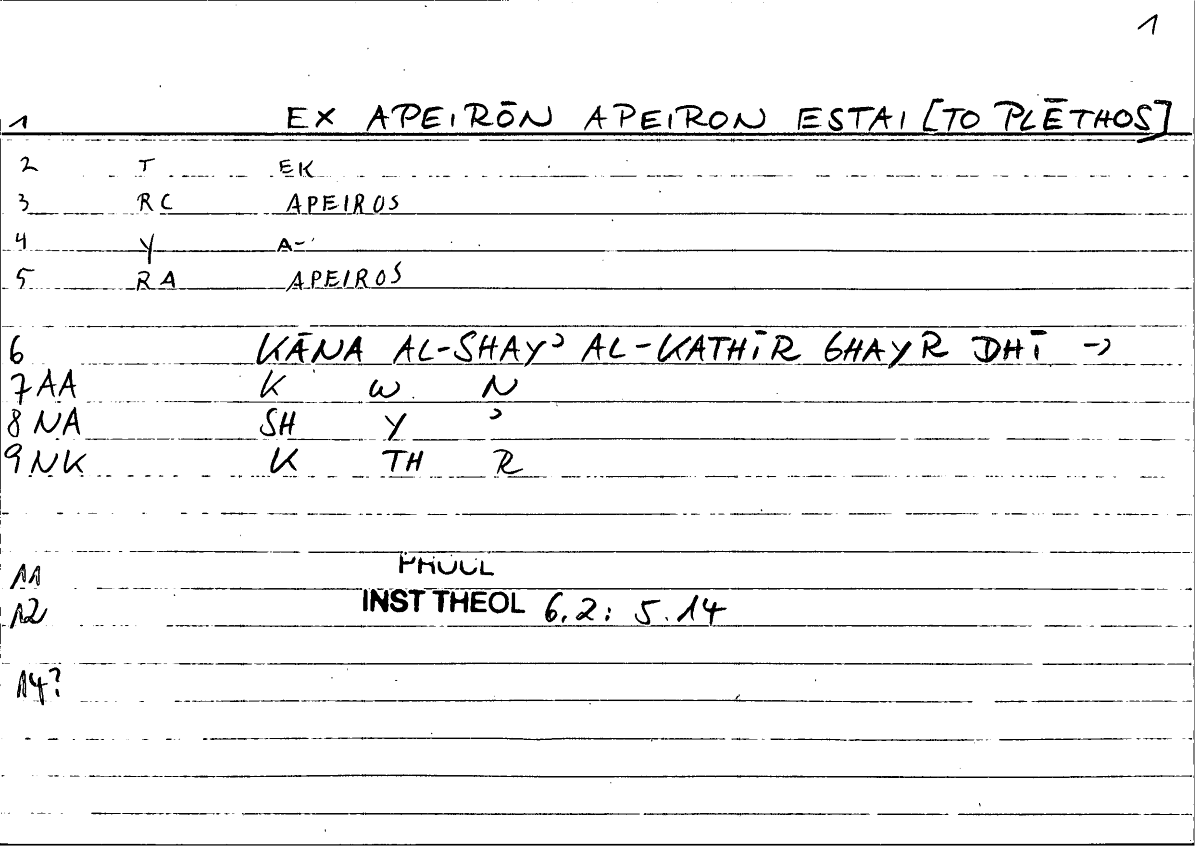 1
1 EX APEIRŌN APEIRON ESTAI [TO PLĒTHOS]
2 T EK
3 RC APEIROS
4 Y A-
5 RA APEIROS
6 KĀNA AL-SHAYʾ AL-KATHĪR GHAYR DHĪ →
7 AA K W N
8 NA SH Y ʾ
9 NK K TH R
11
12 INST THEOL 6.2: 5.14
14?